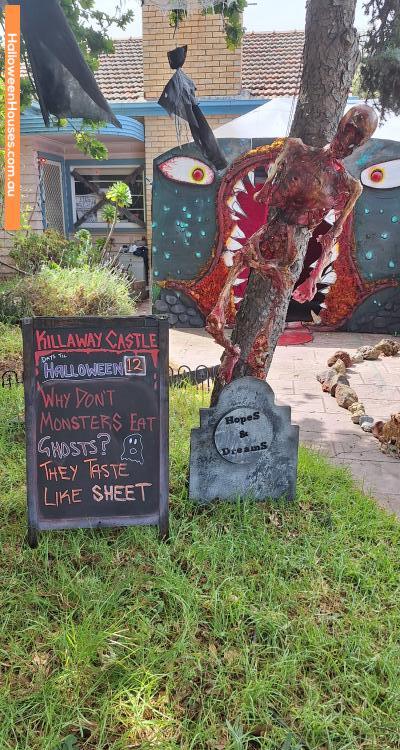 HalloweenHouses.com.au
KILLAWAY CASTLE
DAYS TIL
HALLOWEEN 12
WHY DON'T
MONSTERS EAT
GHOSTS?
THEY TASTE
LIKE SHEET
HopeS
&
DreamS